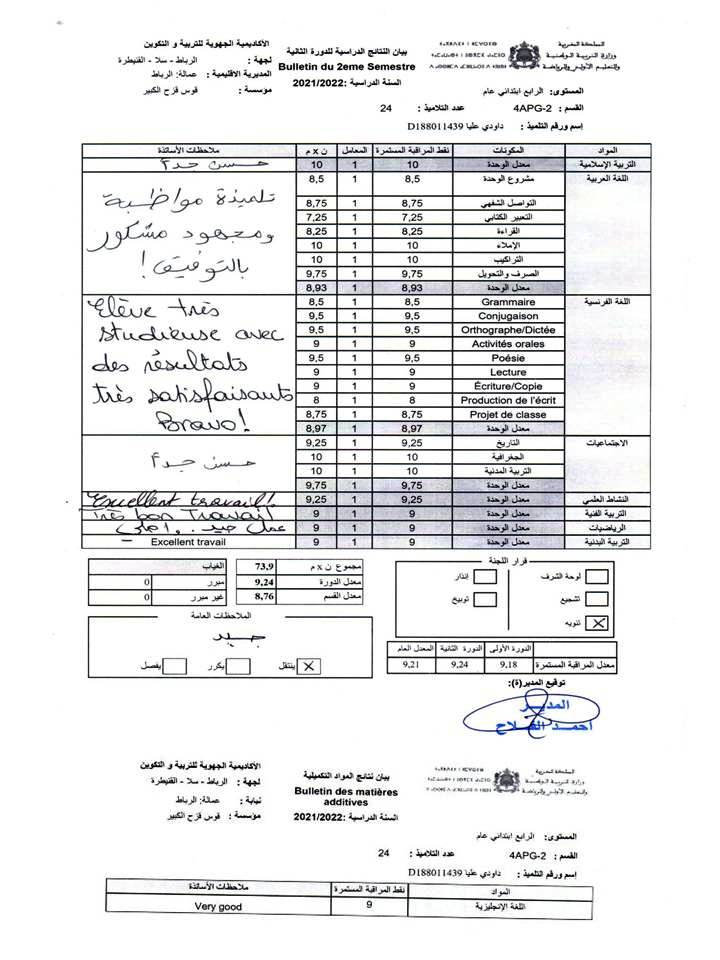 الأكاديمية الجهوية للتربية و التكوين
لجهة : الرباط - سلا - القنيطرة
المديرية الاقليمية : عمالة: الرباط
مؤسسة : قوس قزح الكبير
بيان النتائج الدراسية للدورة الثانية
Bulletin du 2eme Semestre
السنة الدراسية :2021/2022
المملكة المغربية
وزارة التربية الوطنية
والتعليم الأولي والرياضة
المستوى: الرابع ابتدائي عام
القسم : 4APG-2 عدد التلاميذ : 24
إسم ورقم التلميذ : داودي عليا D188011439
المواد المكونات نقط المراقبة المستمرة المعامل ن x م ملاحظات الأساتذة
التربية الإسلامية معدل الوحدة 10 1 10 حسن جدا
اللغة العربية مشروع الوحدة 8,5 1 8,5
التواصل الشفهي 8,75 1 8,75
التعبير الكتابي 7,25 1 7,25
القراءة 8,25 1 8,25
الإملاء 10 1 10
التراكيب 10 1 10
الصرف والتحويل 9,75 1 9,75
معدل الوحدة 8,93 1 8,93
تلميذة مواظبة
ومجهود مشكور
بالتوفيق!
اللغة الفرنسية Grammaire 8,5 1 8,5
Conjugaison 9,5 1 9,5
Orthographe/Dictée 9,5 1 9,5
Activités orales 9 1 9
Poésie 9,5 1 9,5
Lecture 9 1 9
Écriture/Copie 9 1 9
Production de l'écrit 8 1 8
Projet de classe 8,75 1 8,75
معدل الوحدة 8,97 1 8,97
Elève très
studieuse avec
des résultats
très satisfaisants
Bravo!
الاجتماعيات التاريخ 9,25 1 9,25
الجغرافية 10 1 10
التربية المدنية 10 1 10
معدل الوحدة 9,75 1 9,75
حسن جدا
النشاط العلمي معدل الوحدة 9,25 1 9,25 Excellent travail!
التربية الفنية معدل الوحدة 9 1 9 Très bon Travail
الرياضيات معدل الوحدة 9 1 9 عمل جيد
التربية البدنية معدل الوحدة 9 1 9 Excellent travail
الغياب
مبرر 0
غير مبرر 0
مجموع ن x م 73,9
معدل الدورة 9,24
معدل القسم 8,76
قرار اللجنة
لوحة الشرف إنذار
تشجيع توبيخ
تنويه X
الملاحظات العامة
جيد
ينتقل X يكرر يفصل
الدورة الأولى الدورة الثانية المعدل العام
معدل المراقبة المستمرة 9,18 9,24 9,21
توقيع المدير(ة):
المدير
احمد الفلاح
الأكاديمية الجهوية للتربية و التكوين
لجهة : الرباط - سلا - القنيطرة
نيابة : عمالة: الرباط
مؤسسة : قوس قزح الكبير
بيان نتائج المواد التكميلية
Bulletin des matières
additives
السنة الدراسية :2021/2022
المملكة المغربية
وزارة التربية الوطنية
والتعليم الأولي والرياضة
المستوى: الرابع ابتدائي عام
القسم : 4APG-2 عدد التلاميذ : 24
إسم ورقم التلميذ : داودي عليا D188011439
المواد نقط المراقبة المستمرة ملاحظات الأساتذة
اللغة الإنجليزية 9 Very good